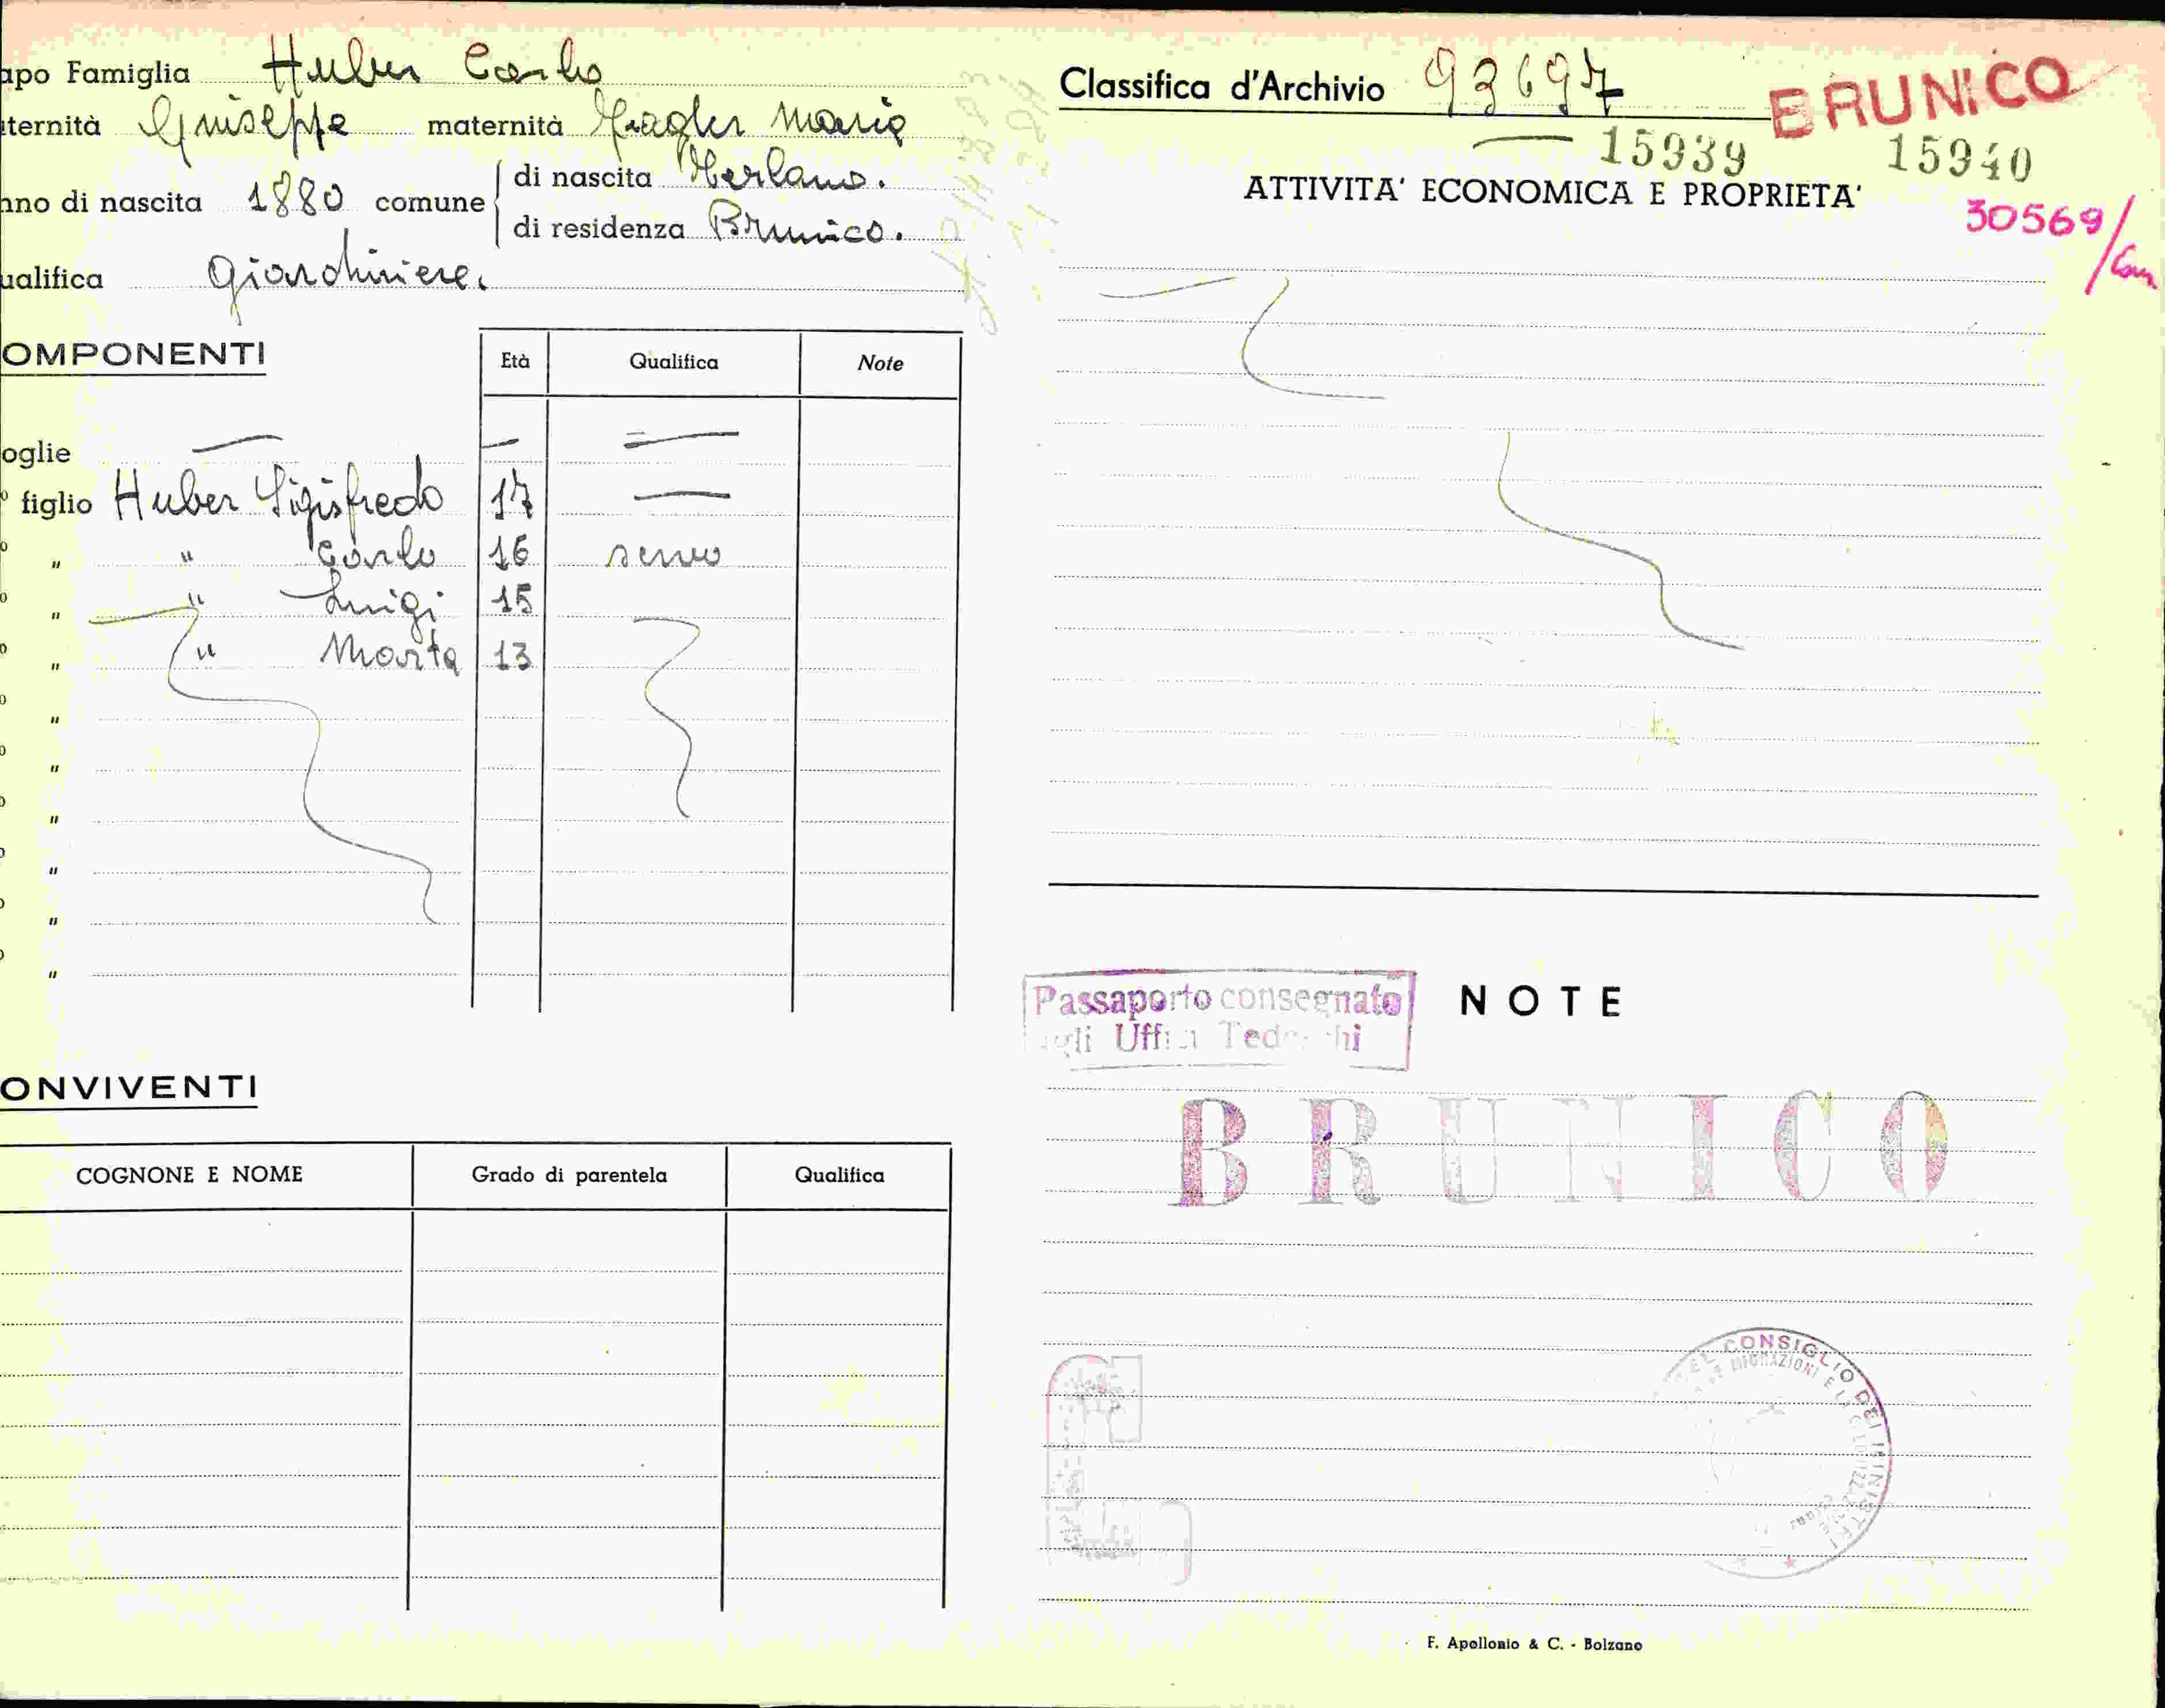 apo Famiglia Huber Carlo
ternità Giuseppe maternità Maria
nno di nascita 1880 comune di nascita Terlano.
di residenza Brunico.
ualifica giardiniere.
OMPONENTI Età Qualifica Note
oglie — — —
figlio Huber Sigisfredo 17 —
" " Carlo 16 servo
" " Luigi 15
" " Marta 13
"
"
"
"
"
"
ONVIVENTI
COGNONE E NOME Grado di parentela Qualifica
Classifica d'Archivio 93697 BRUNICO
15939 15940
ATTIVITA' ECONOMICA E PROPRIETA'
30569/
Passaporto consegnato
agli Uffici Tedeschi
NOTE
BRUNICO
CONSIGLIO DEI MINISTRI
F. Apollonio & C. - Bolzano